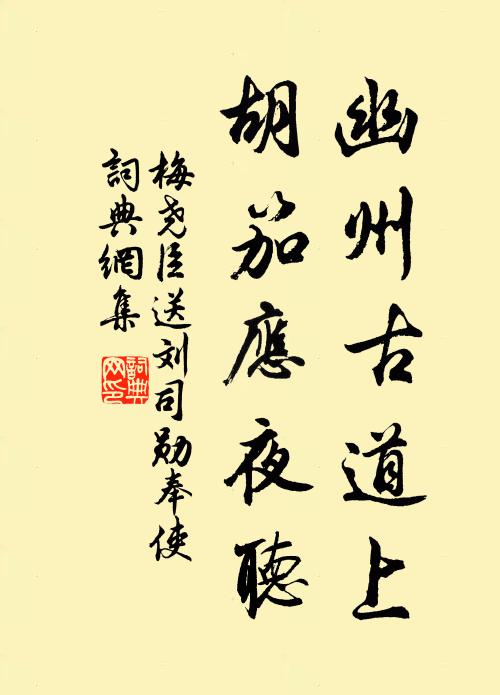 幽州古道上
胡笳應夜聽
梅尧臣送刘司勋奉使
詞典網集
詞典網印